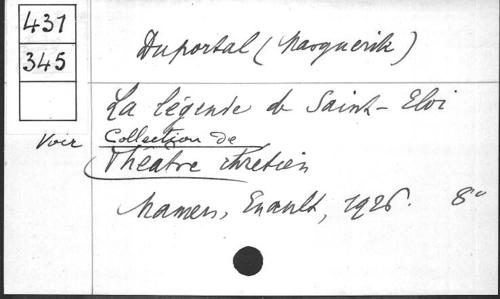 431
345
Duportal (Marguerite)
La légende de Saint-Eloi
Voir Collection de
Théâtre chrétien
Mamers, Enault, 1926. 8°